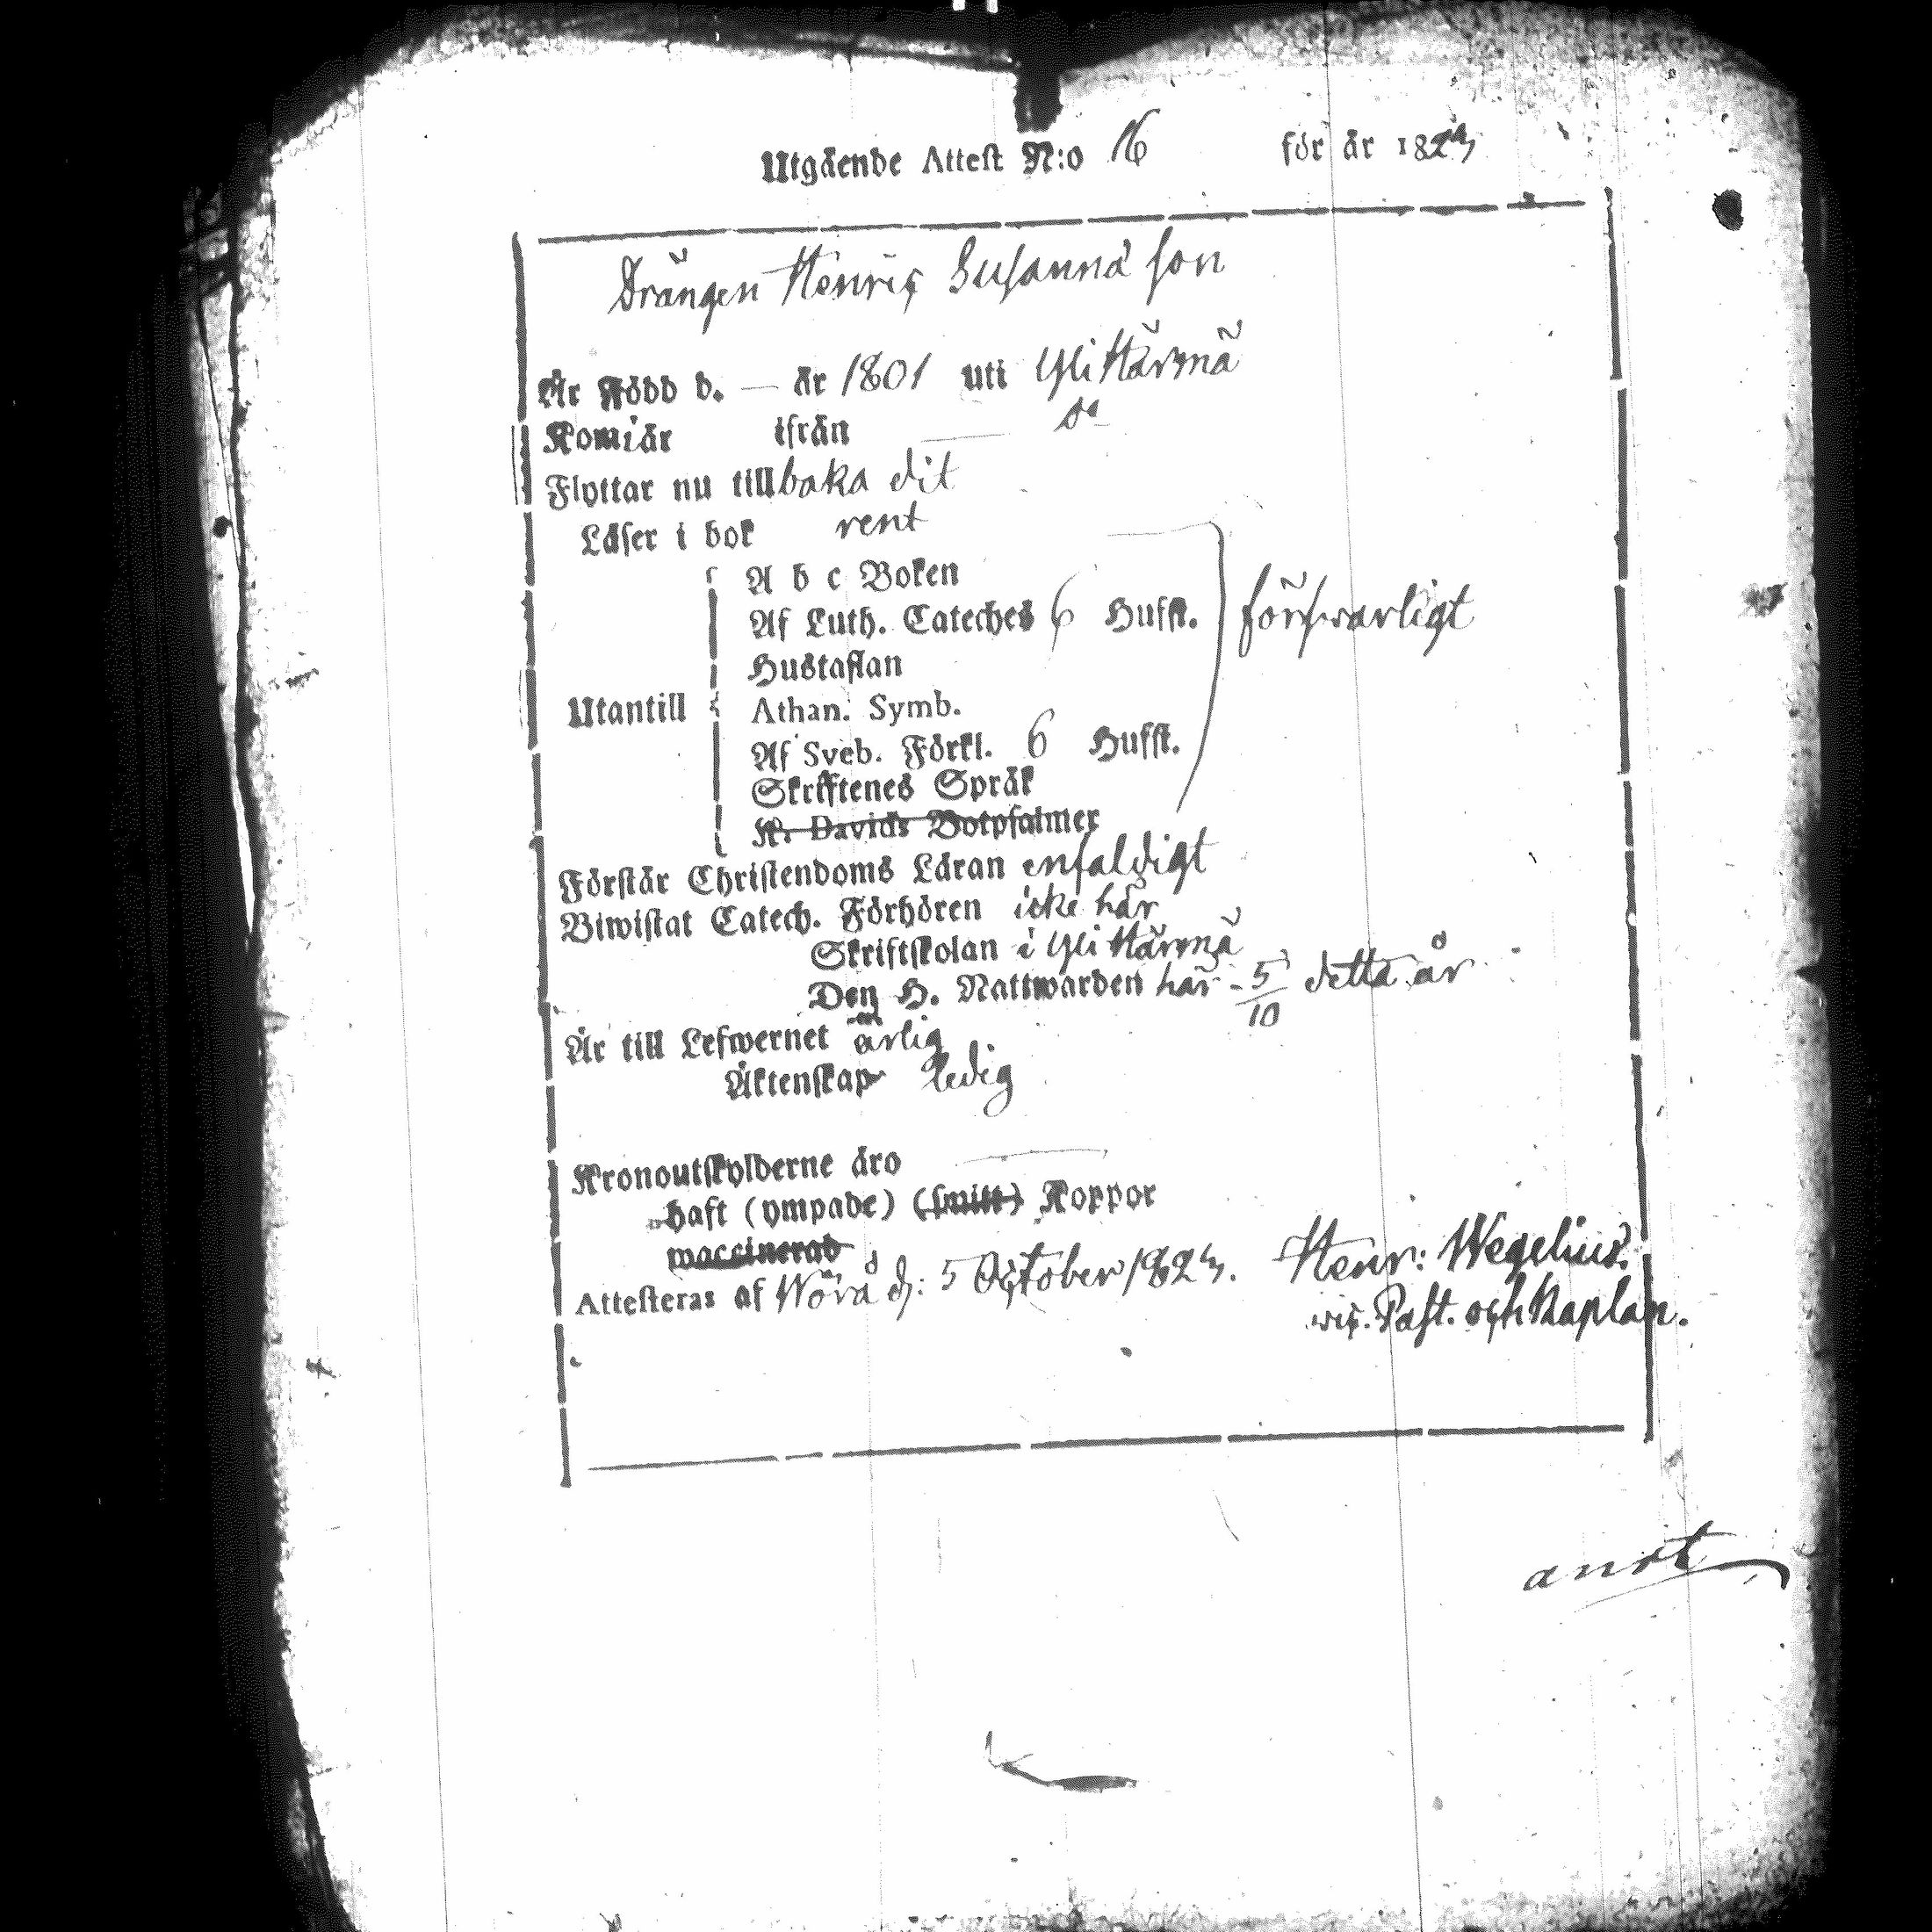 Utgående Attest N:o 16 för år 1823
Drängen Henric Susannæ son
Är Född d. — år 1801 uti Yli Härmä
Kom i år ifrån — do
Flyttar nu tillbaka dit
Läser i bok rent
A b c Boken
Af Luth. Cateches 6 Hufst. försvarligt
Hustaflan
Utantill Athan. Symb.
Af Sveb. Förkl. 6 Hufst.
Skriftenes Språk
K. Davids Botpsalmer
Förstår Christendoms Läran enfaldigt
Biwistat Catech. Förhören icke här
Skriftskolan i Yli Härmä
Den H. Nattwarden här - 5/10 detta år
Är till Lefwernet ärlig
Äktenskap ledig
Kronoutskylderne äro —
haft (ympade) (smitt) Koppor
waccinerad
Attesteras af Wörå d: 5 October 1823. Henr: Wegelius.
vic. Past. och Kaplan.